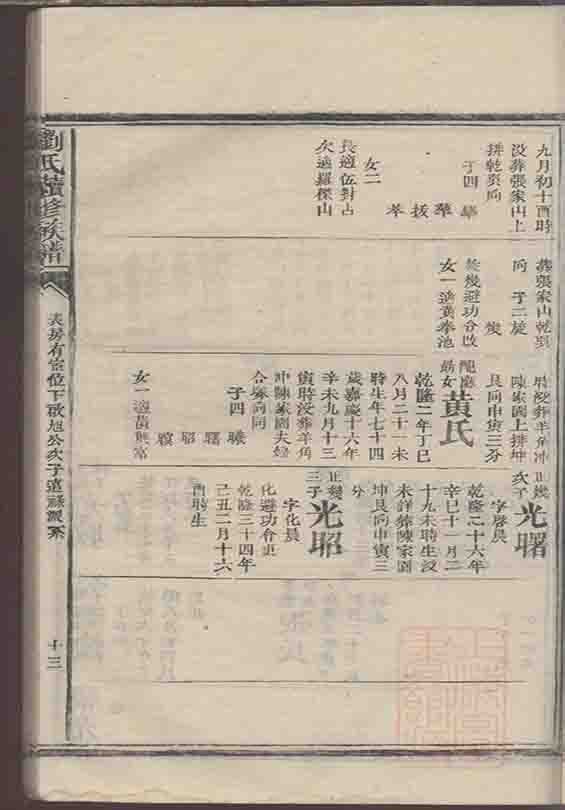 九月初十酉時
没葬張家山上
排乾巽向
子四
華
拔
芩
女二
長適伍對占
次適羅傑山
葬張家山乾巽
向 子二旋
幾
旋幾避功令改
女一適黄奉池
時没葬羊角冲
陳家園上排坤
艮向申寅三分
配應
女
黄氏
乾隆二年丁巳
八月二十一未
時生年七十四
歲嘉慶十六年
辛未九月十三
寅時没葬羊角
冲陳家園夫
合塚向同
子四
曦
曙
昭
女一適黄興富
正幾
次子
光曙
字啓晨
乾隆二十六年
辛巳十一月二
十九未時生没
未詳葬陳家園
坤艮向申寅三
分
正幾
三子
光昭
字化晨
化避功令正
乾隆三十四年
己丑二月十六
酉時生
劉氏續修族譜
表房有宦位下啟旭公次子遠祿派系
十三